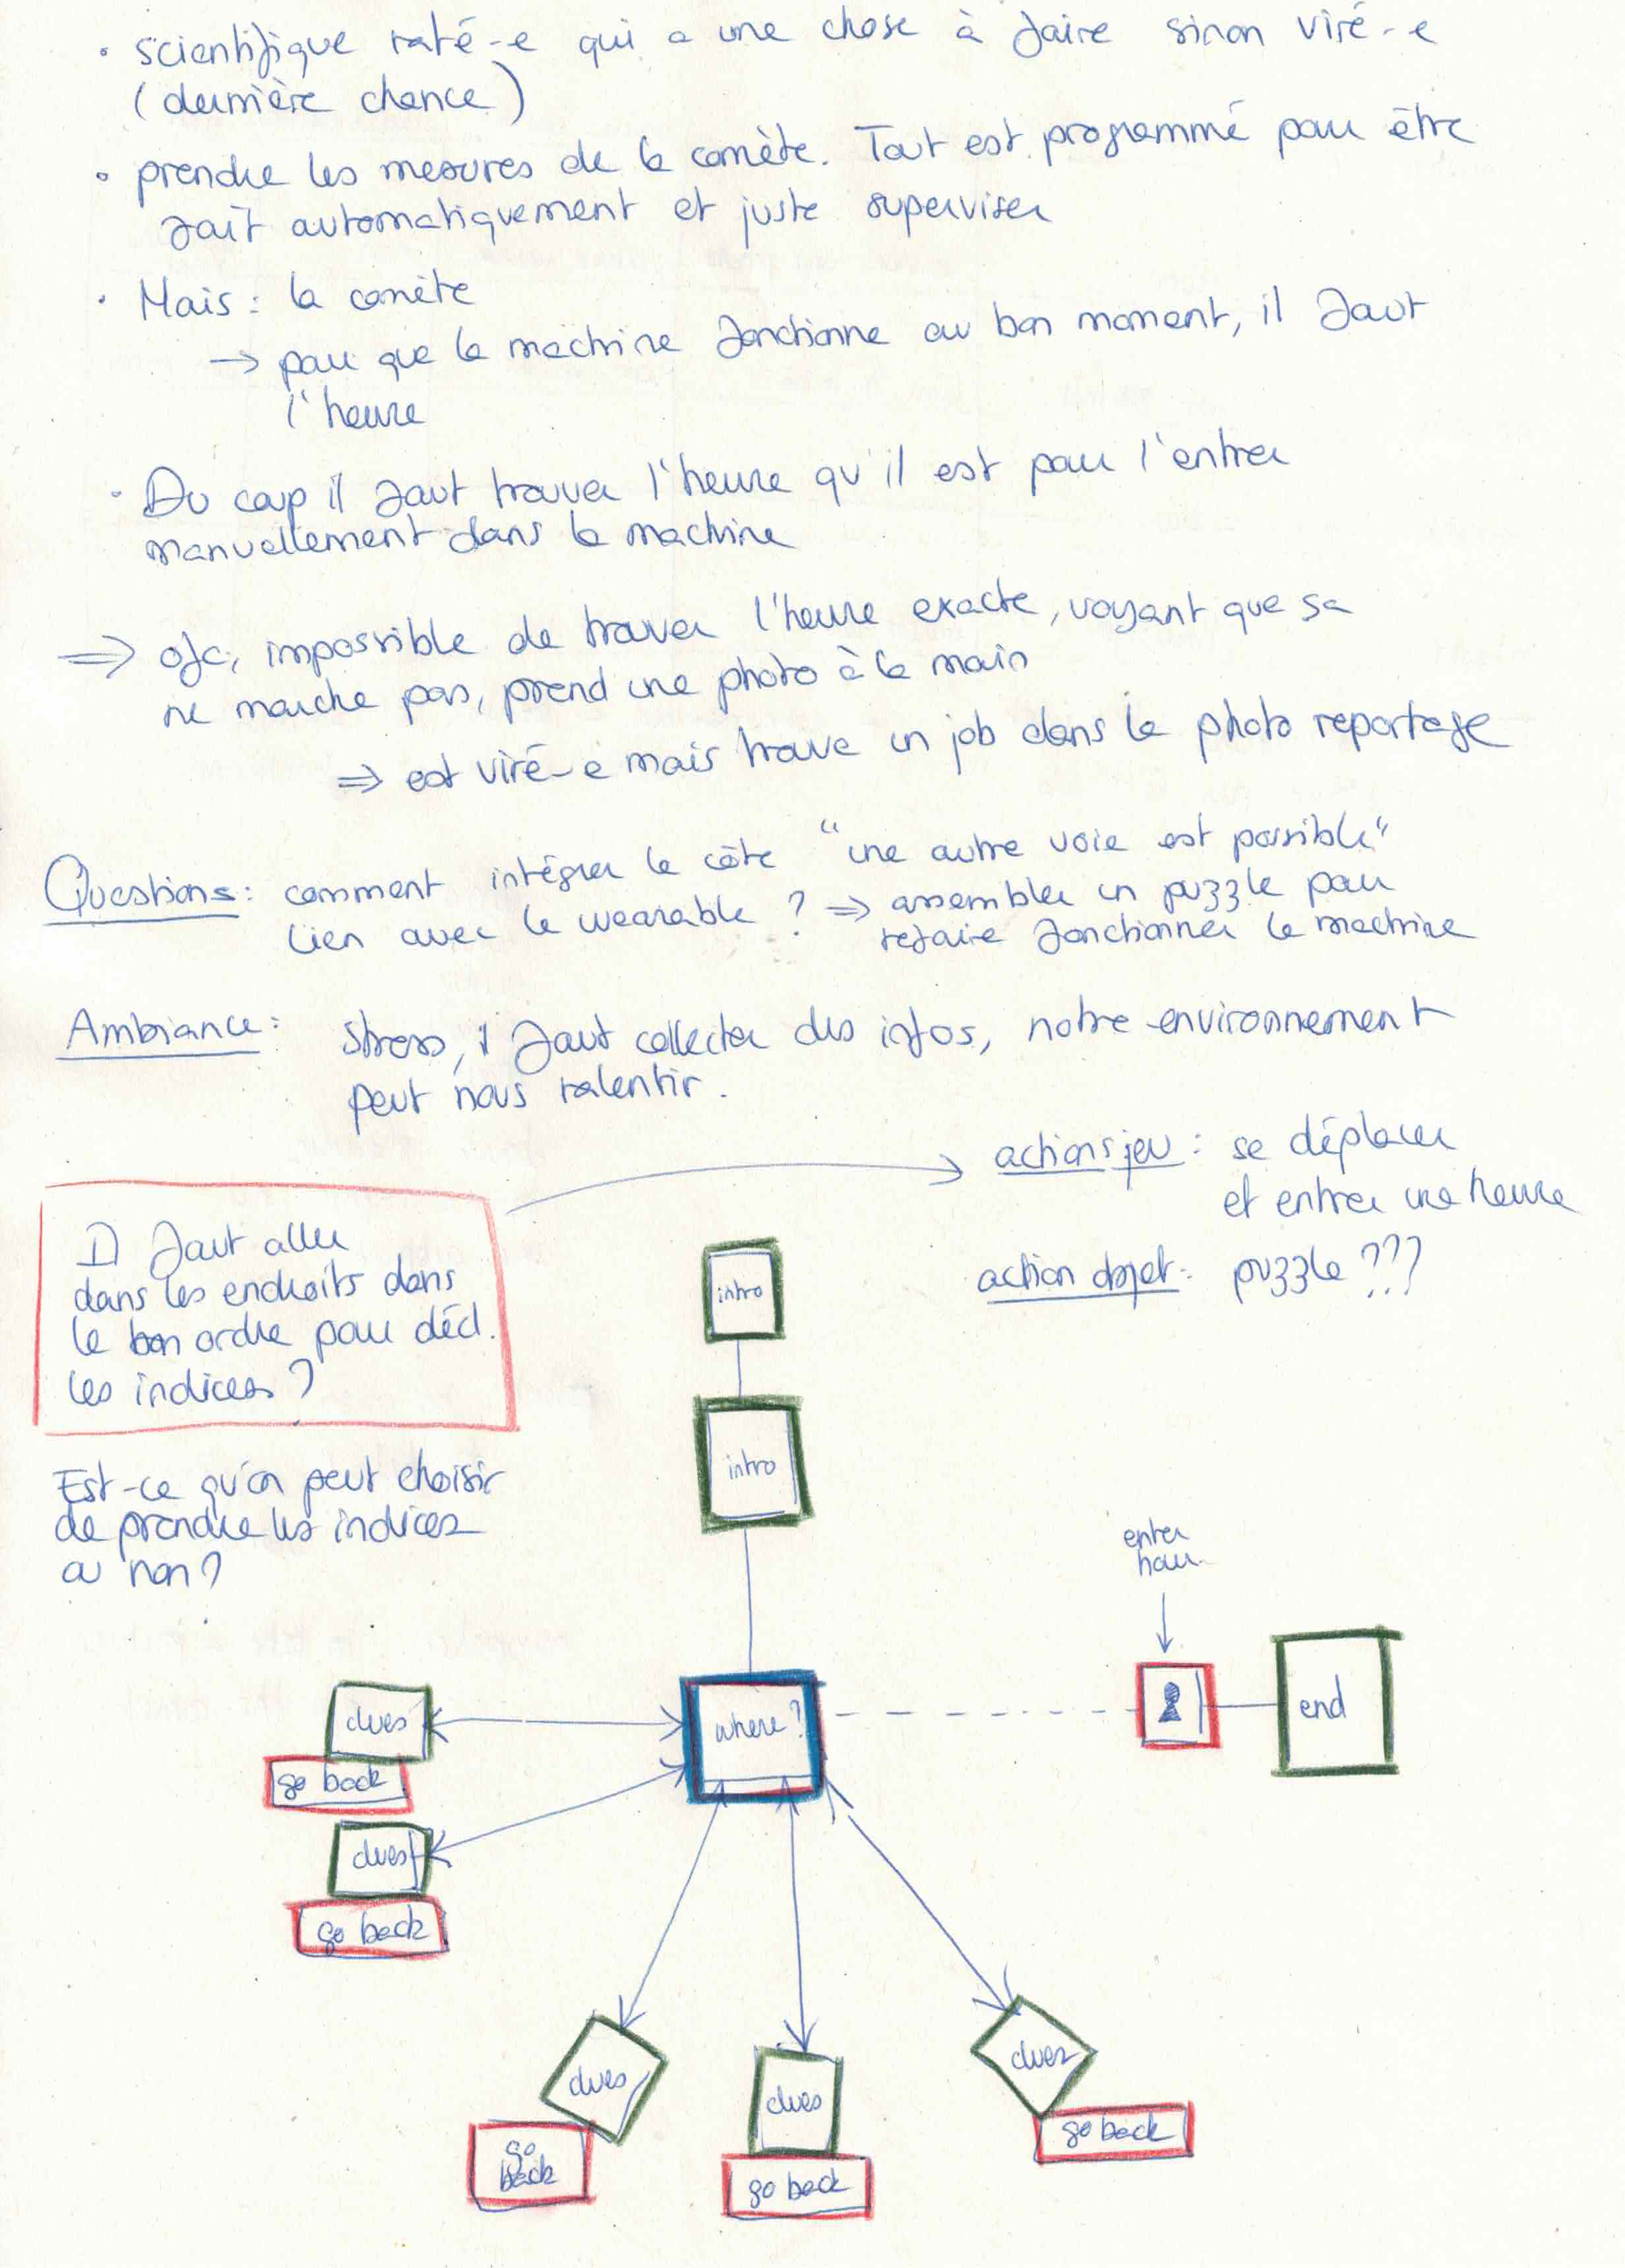 • scientifique raté-e qui a une chose à faire sinon viré-e
(dernière chance)
• prendre les mesures de la comète. Tout est programmé pour être
fait automatiquement et juste superviser
• Mais : la comète
→ pour que la machine fonctionne au bon moment, il faut
l'heure
• Du coup il faut trouver l'heure qu'il est pour l'entrer
manuellement dans la machine
⇒ ofc, impossible de trouver l'heure exacte, voyant que sa
ne marche pas, prend une photo à la main
⇒ est viré-e mais trouve un job dans le photo reportage
Questions : comment intégrer le côté "une autre voie est possible"
lien avec le wearable ? ⇒ assembler un puzzle pour
refaire fonctionner la machine
Ambiance : stress, il faut collecter des infos, notre environnement
peut nous ralentir.
actions jeu : se déplacer
et entrer une heure
action objet : puzzle ???
Il faut aller
dans les endroits dans
le bon ordre pour décl.
les indices ?
Est-ce qu'on peut choisir
de prendre les indices
ou non ?
intro
intro
enter
hour
where?
end
clues
go back
clues
go back
clues
go
back
clues
go back
clues
go back